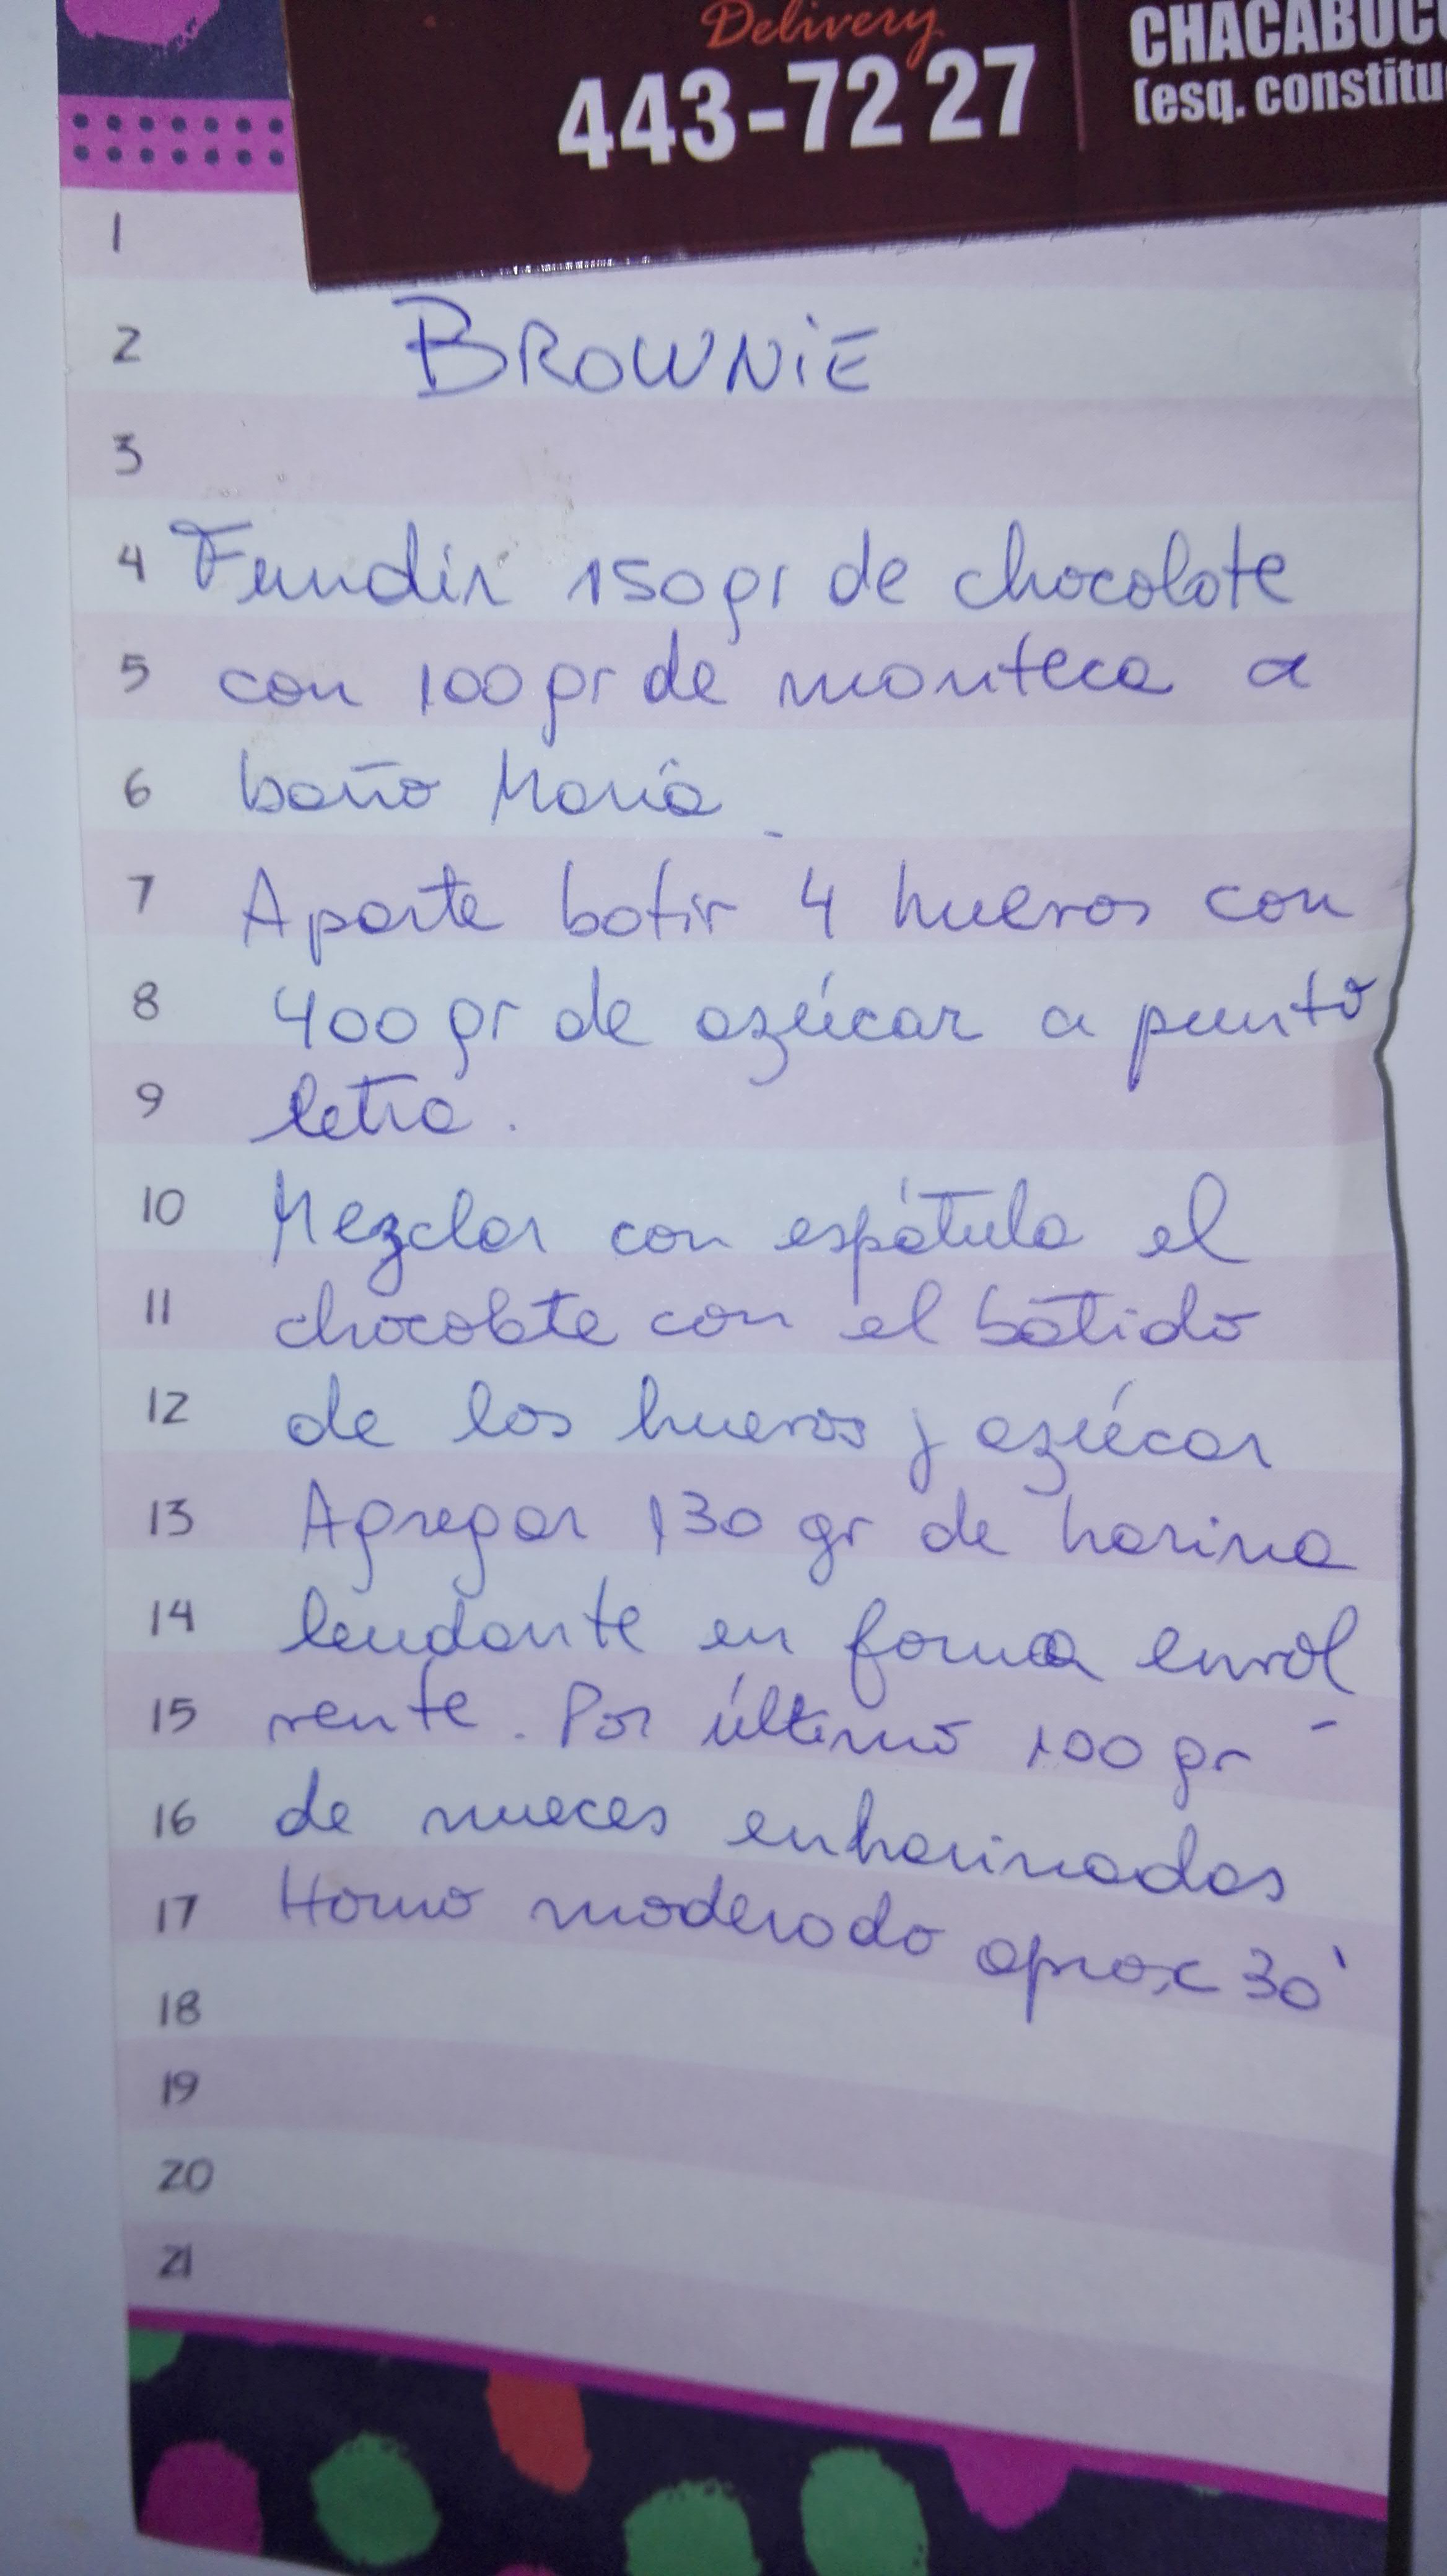 Delivery
443-72 27
CHACABUC
(esq. constitu
1
2 BROWNiE
3
4 Fundir 150 gr de chocolate
5 con 100 gr de manteca a
6 baño María
7 Aparte batir 4 huevos con
8 400 gr de azúcar a punto
9 letra.
10 Mezclar con espátula el
11 chocolate con el batido
12 de los huevos y azúcar
13 Agregar 130 gr de harina
14 leudante en forma envol
15 vente. Por último 100 gr -
16 de nueces enharinadas
17 Horno moderado aprox 30'
18
19
20
21